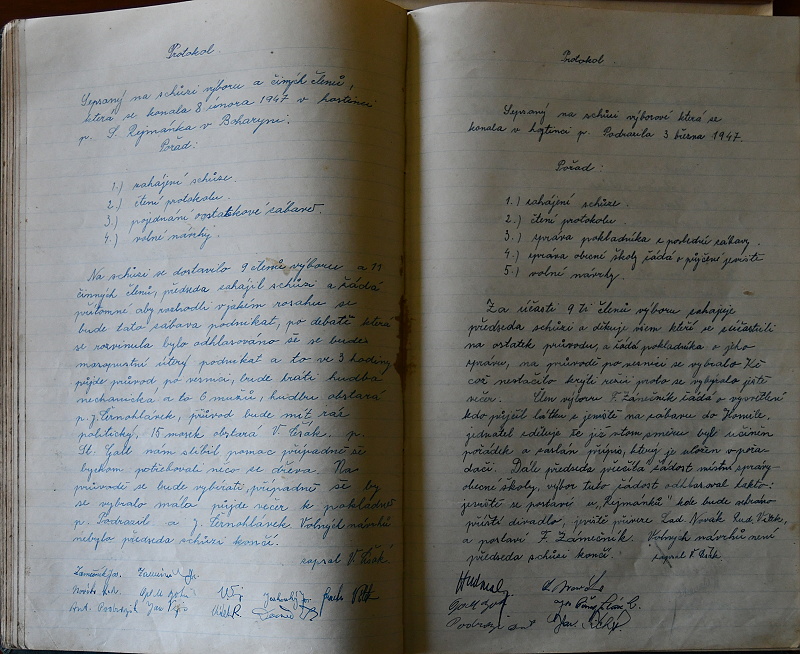 Protokol.
Sepsaný na schůzi výboru a činých členů,
která se konala 8 února 1947 v hostinci
p. S. Rejmánka v Boharyni.
Pořad:
1.) zahájení schůze.
2.) čtení protokolu.
3.) pojednání o ostatkové zábavě.
4.) volné návrhy.
Na schůzi se dostavilo 9 členů výboru a 11
činných členů, předseda zahájil schůzi a žádá
přítomné aby rozhodli v jakém rosahu se
bude tato zábava podnikat, po debatě která
se rozvinula bylo odhlasováno že se bude
masopustní úterý podnikat a to ve 3 hodiny
půjde průvod po vesnici, bude hráti hudba
mechanicka a to 6 mužů, hudbu obstará
p. J. Černohlávek, průvod bude mít ráz
politický, 15 masek obstará V. Čsák. p.
St. Galt nám slíbil pomoc případně že
bychom potřebovali něco ze dřeva. Na
průvodě se bude vybírati, případně že by
se vybralo málo půjde večer k pokladně
p. Podrazil a J. Černohlávek. Volných návrhů
nebylo předseda schůzi končí.
zapsal V. Čsák
Protokol.
Sepsaný na schůzi výborové která se
konala v hostinci p. Podrazila 3 března 1947.
Pořad:
1.) zahájení schůze.
2.) čtení protokolu.
3.) zpráva pokladníka z poslední zábavy.
4.) zpráva obecné školy žádá o půjčení jeviště
5.) volné návrhy.
Za účasti 9 ti členů výboru zahajuje
předseda schůzi a děkuje všem kteří se súčastnili
na ostatek průvodu, a žádá pokladníka o jeho
zprávu, na průvodě po vesnici se vybralo Kč
což nestačilo krýti režii proto se vybíralo ještě
večer. Člen výboru F. Zámečník žádá o vysvětlení
kdo půjčil látku z jeviště na zábavu do Homile,
jednatel sděluje že již v tom směru byl učiněn
pořádek a zaslán přípis, který je uložen v pořa-
dači. Dále předseda přečetla žádost místní správy
obecné školy, výbor tuto žádost odhlasoval takto:
jeviště se postaví u „Rejmánků" kde bude sehráno
příští divadlo, jeviště přiveze Lad. Novák Rud. Vítek,
a postaví F. Zámečník. Volných návrhů není
předseda schůzi končí.
zapsal V. Čsák.